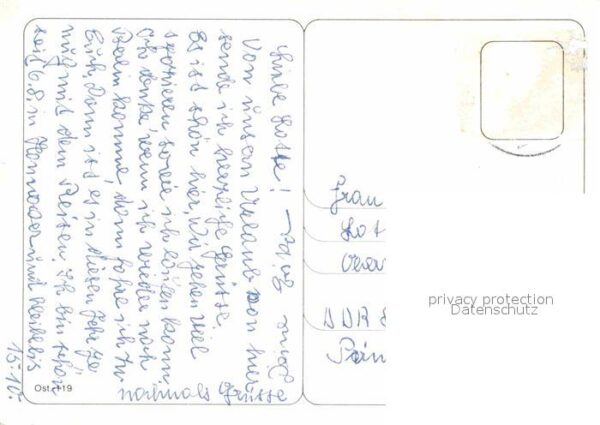 Liebe Lotte!
Von unsern Urlaub von hier
sende ich herzliche Grüsse.
Es ist schön hier, Wir gehen viel
spazieren soviel ich laufen kann.
Ich denke, wenn ich wieder nach
Berlin komme, dann fahre ich zu
Euch, Dann ist es in diesen Jahr ge
nug mit dem Reisen. Ich bin schon
seit 6.8. in Hannover und bleibe bis
15.10.
nochmals Grüsse
Frau
Lot
DDR
Ost 119
privacy protection
Datenschutz